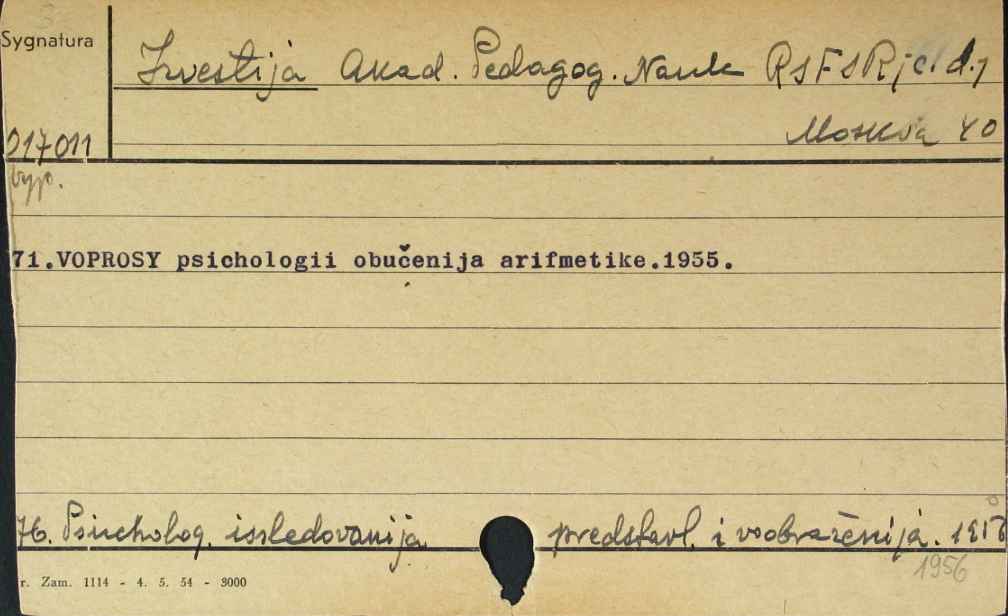 Sygnatura
Izvestija Akad. Pedagog. Nauk RSFSR; c. d.;
Moskva 40
017011
vyp.
71.VOPROSY psichologii obučenija arifmetike.1955.
76. Psicholog. issledovanija predstavl. i voobraženija.
1956
r. Zam. 1114 - 4. 5. 54 - 3000